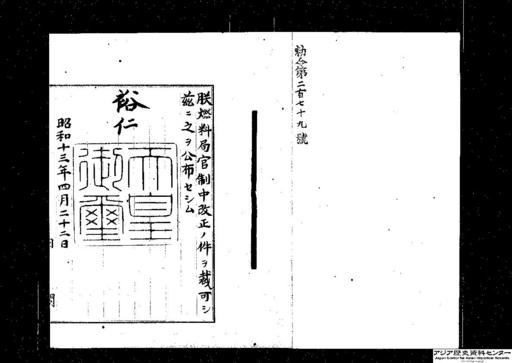 勅令第二百七十九號
朕燃料局官制中改正ノ件ヲ裁可シ
茲ニ之ヲ公布セシム
裕仁
天皇御璽
昭和十三年四月二十二日
アジア歴史資料センター
Japan Center for Asian Historical Records